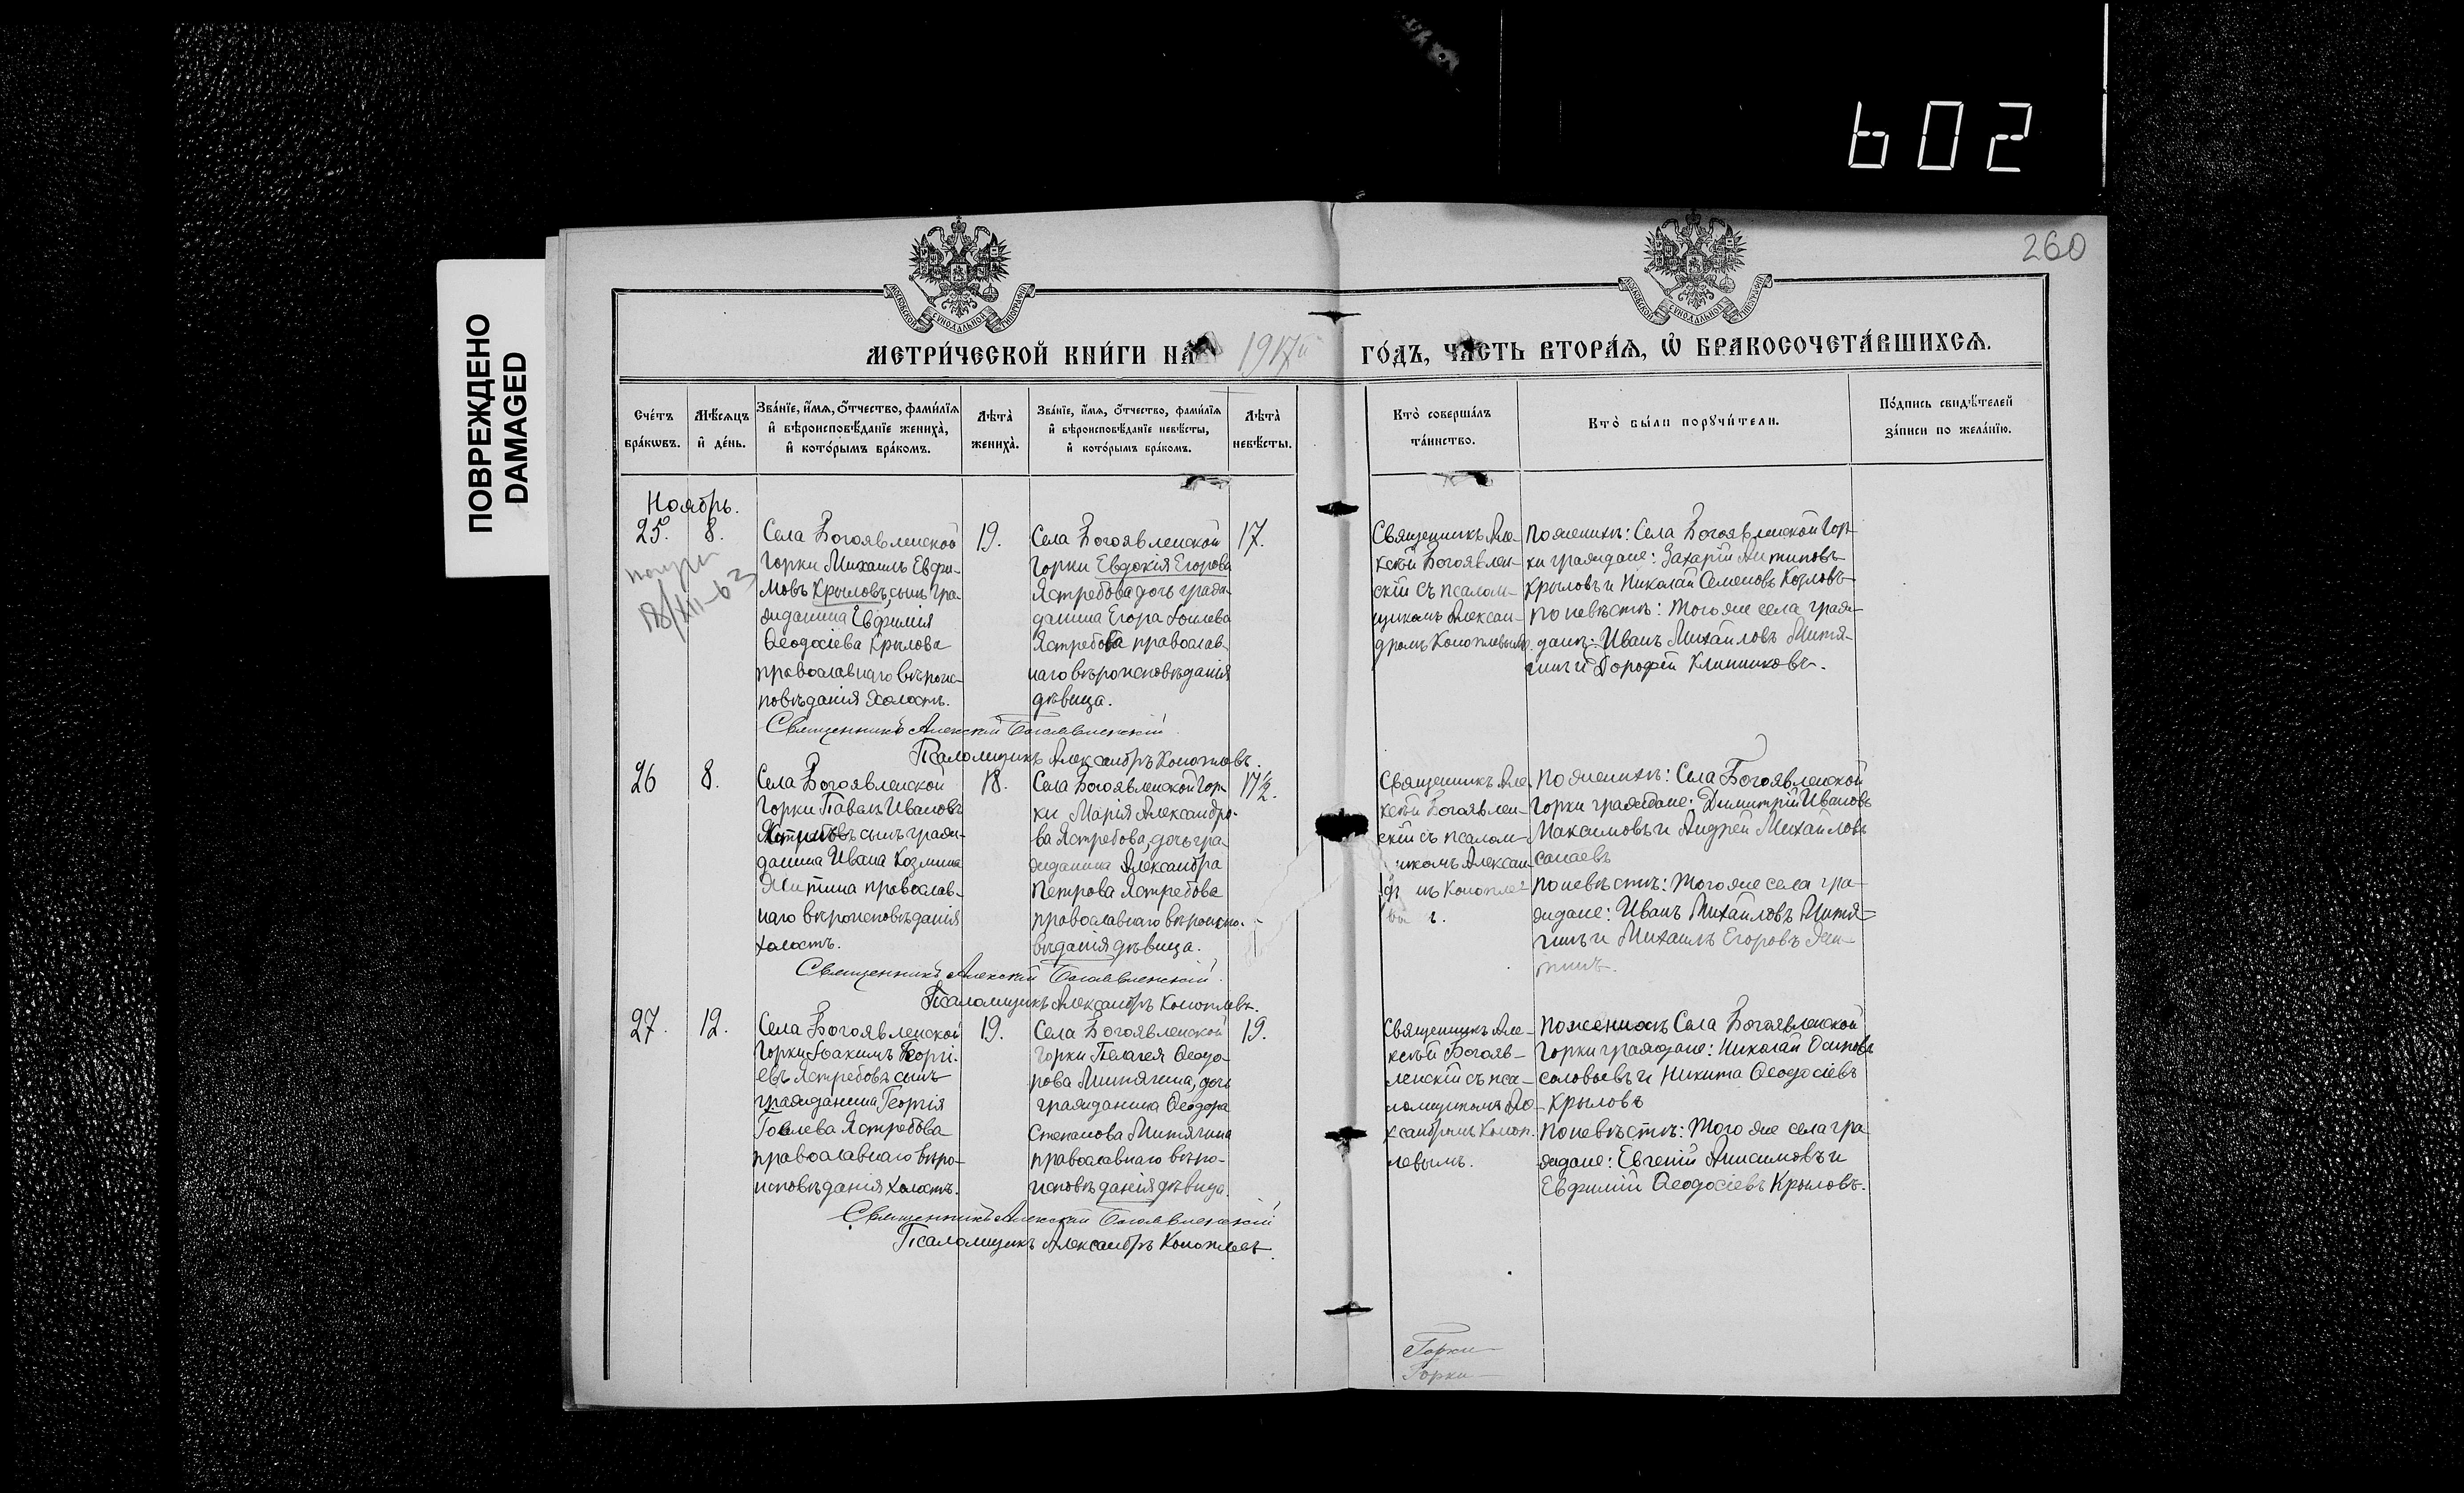 602
ПОВРЕЖДЕНО
DAMAGED
260
МОСКОВСКОЙ СУНОДАЛЬНОЙ ТИПОГРАФІИ
МОСКОВСКОЙ СУНОДАЛЬНОЙ ТИПОГРАФІИ
МЕТРИ́ЧЕСКОЙ КНИ́ГИ НА 1917й ГО́ДЪ, ЧА́СТЬ ВТОРА́Ѧ, Ѡ҆ БРАКОСОЧЕТА́ВШИХСѦ.
Сче́тъ бра́кѡвъ.
Мѣ́сѧцъ и҆ де́нь.
Зва́нїе, и҆́мѧ, ѻ҆́тчество, фами́лїѧ
и҆ вѣроисповѣ́данїе жениха̀,
и҆ кото́рымъ бра́комъ.
Лѣта̀ жениха̀.
Зва́нїе, и҆́мѧ, ѻ҆́тчество, фами́лїѧ
и҆ вѣроисповѣ́данїе невѣ́сты,
и҆ кото́рымъ бра́комъ.
Лѣта̀ невѣ́сты.
Кто̀ соверша́лъ
та́инство.
Кто̀ бы́ли порꙋчи́тели.
По́дпись свидѣ́телей
за́писи по жела́нїю.
Ноябрь.
25. 8.
Села Богоявленской
Горки Михаилъ Евфи-
мовъ Крыловъ, сынъ гра-
жданина Евфимія
Ѳеодосіева Крылова
православнаго вѣроис-
повѣданія холостъ.
19.
Села Богоявленской
Горки Евдокія Егорова
Ястребова дочь граж-
данина Егора
Ястребова православ-
наго вѣроисповѣданія
дѣвица.
17.
Священникъ Але-
ксѣй Богоявлен-
скій съ псалом-
щикомъ Алексан-
дромъ Коноплевымъ
По женихѣ: Села Богоявленской Гор-
ки граждане: Захарій Антиповъ
Крыловъ и Николай Семеновъ Козловъ
По невѣстѣ: Того же села граж-
дане: Иванъ Михайловъ Митя-
гинъ и Дорофей Клинниковъ.
Священникъ Алексій Богоявленскій
Псаломщикъ Александръ Коноплевъ.
26 8.
Села Богоявленской
Горки Павелъ Ивановъ
сынъ граж-
данина Ивана Козмина
православ-
наго вѣроисповѣданія
холостъ.
18.
Села Богоявленской Гор-
ки Марія Александро-
ва Ястребова, дочь гра-
жданина Александра
Петрова Ястребова
православнаго вѣроиспо-
вѣданія дѣвица.
17½.
Священникъ Але-
ксѣй Богоявлен-
скій съ псалом-
щикомъ Алексан-
По женихѣ: Села Богоявленской
Горки граждане: Димитрій Ивановъ
Максимовъ и Андрей Михайловъ
По невѣстѣ: Того же села гра-
ждане: Иванъ Михайловъ Митя-
гинъ и Михаилъ Егоровъ
Священникъ Алексій Богоявленскій
Псаломщикъ Александръ Коноплевъ.
27. 12.
Села Богоявленской
Горки Іоакимъ Георгі-
евъ Ястребовъ сынъ
гражданина Георгія
Ястребова
православнаго вѣро-
исповѣданія холостъ.
19.
Села Богоявленской
Горки Пелагея Ѳеодо-
рова Митягина, дочь
гражданина Ѳеодора
Степанова Митягина
православнаго вѣро-
исповѣданія дѣвица.
19.
Священникъ Але-
ксѣй Богояв-
ленскій съ пса-
ломщикомъ Але-
ксандромъ Коноп-
левымъ.
По женихѣ Села Богоявленской
Горки граждане: Николай Осиповъ
Соловьевъ и Никита Ѳеодосіевъ
Крыловъ
По невѣстѣ: Того же села гра-
ждане: Евгеній Анисимовъ и
Евфимій Ѳеодосіевъ Крыловъ.
Священникъ Алексій Богоявленскій
Псаломщикъ Александръ Коноплевъ.
Горки
Горки